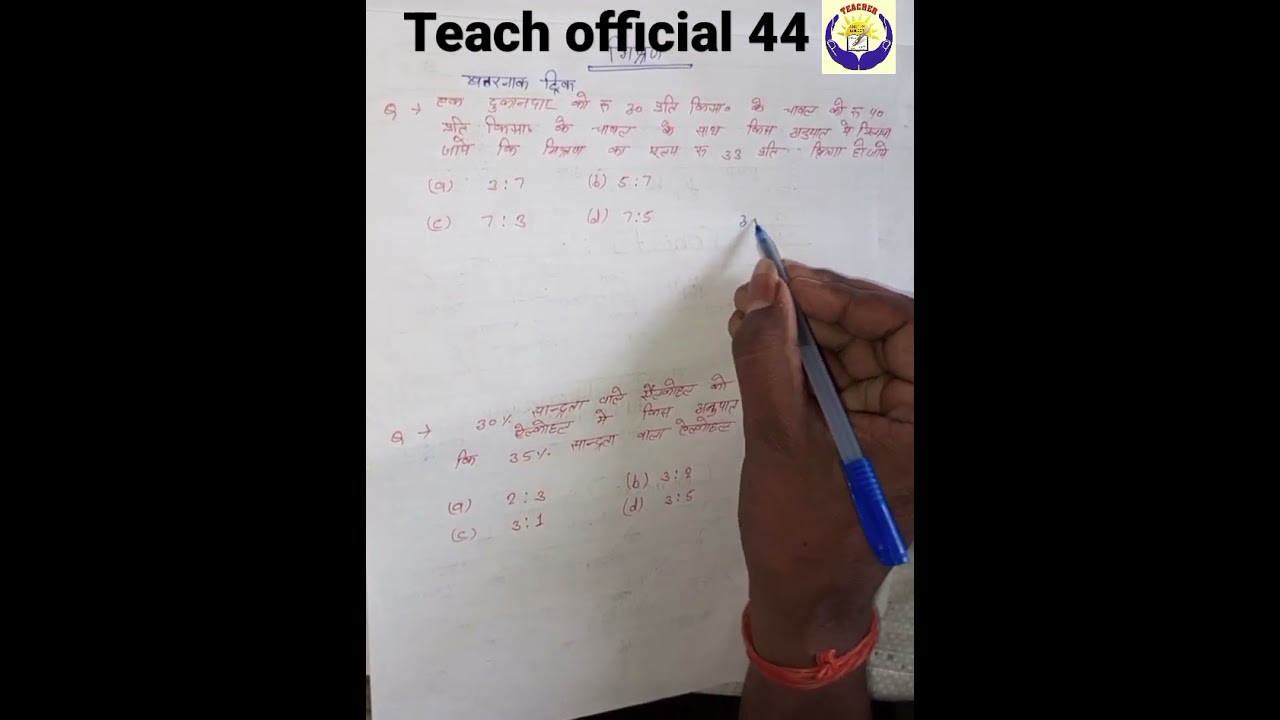 Teach official 44
TEACHER
मिश्रण
खतरनाक ट्रिक
Q → एक दुकानदार को रु 30 प्रति किग्रा० के चावल को रु 40
प्रति किग्रा० के चावल के साथ किस अनुपात में मिलाया
जाये कि मिश्रण का मूल्य रु 33 प्रति किग्रा हो जाये
(a) 3:7 (b) 5:7
(c) 7:3 (d) 7:5
3
Q → 30% सान्द्रता वाले ऐल्कोहल को
ऐल्कोहल में किस अनुपात
कि 35% सान्द्रता वाला ऐल्कोहल
(a) 2:3 (b) 3:2
(c) 3:1 (d) 3:5